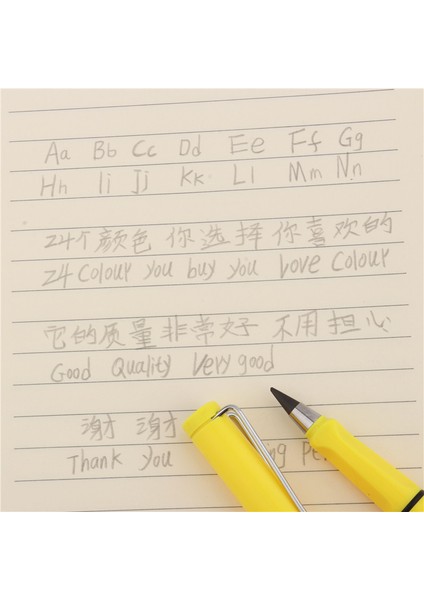 Aa Bb Cc Dd Ee Ff Gg
Hh Ii Jj Kk Ll Mm Nn
24个颜色 你选择 你喜欢的
24 Colour you buy you Love Colour
它的质量非常好 不用担心
Good Quality Very good
谢谢
Thank You